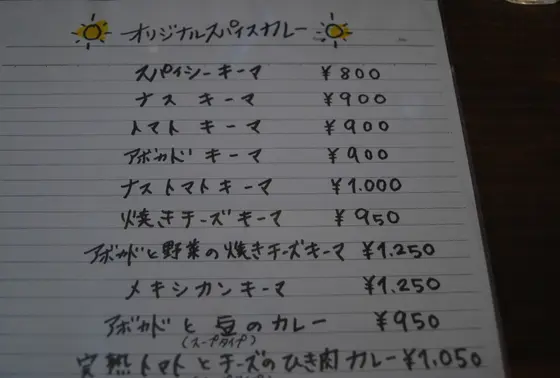 オリジナルスパイスカレー
スパイシーキーマ ¥800
ナス キーマ ¥900
トマト キーマ ¥900
アボカド キーマ ¥900
ナストマトキーマ ¥1.000
焼きチーズキーマ ¥950
アボカドと野菜の焼きチーズキーマ ¥1.250
メキシカンキーマ ¥1.250
アボカドと豆のカレー ¥950
(スープタイプ)
完熟トマトとチーズのひき肉カレー ¥1.050